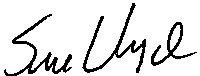 Sue Lloyd